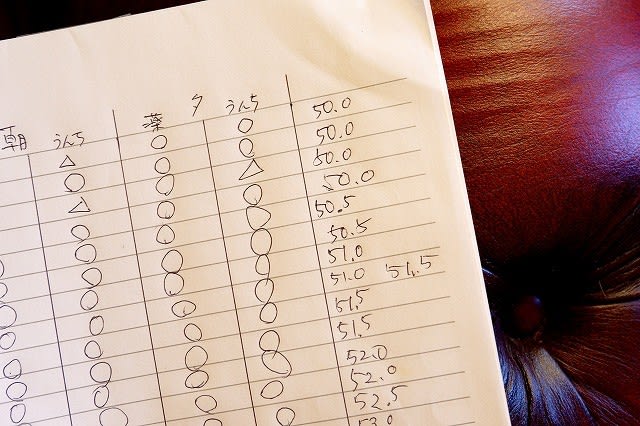 夕
朝 うんち 薬 うんち
50.0
50.0
50.0
50.0
50.5
50.5
51.0
51.0 51.5
51.5
51.5
52.0
52.0
52.5
53.0